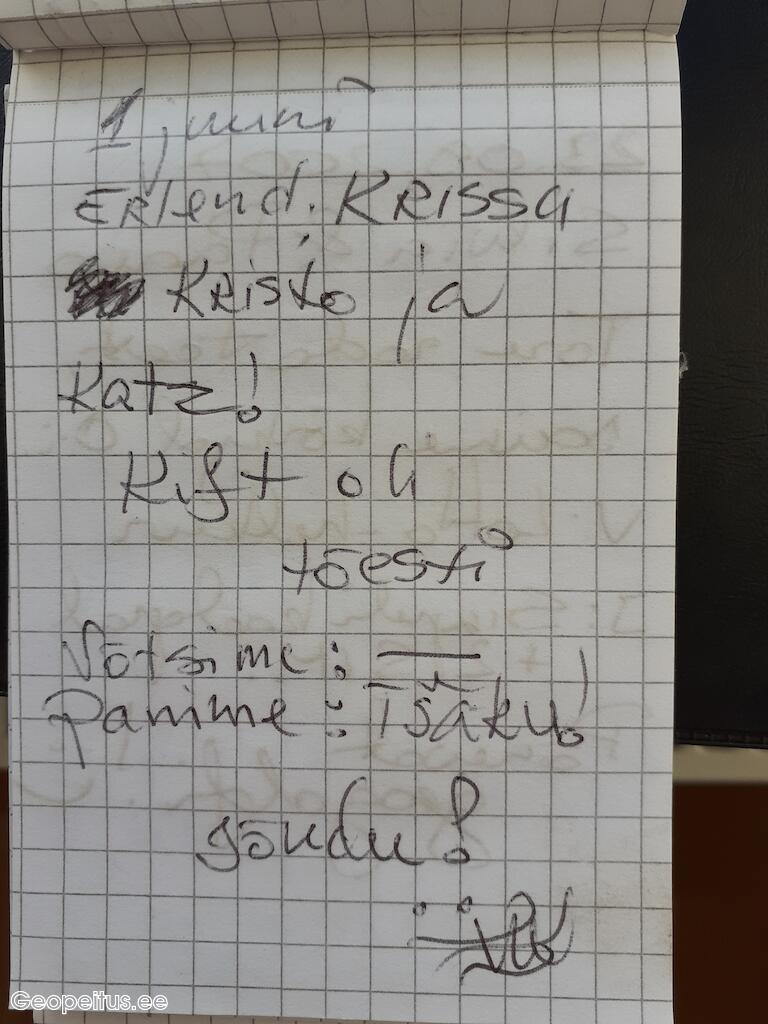 1 juuni
Erlend. KRISSA
KRISTO ja
Katz!
Kift oli
tõesti
Võtsime: —
Panime: Tšäku!
Jõudu!
Geopeitus.ee